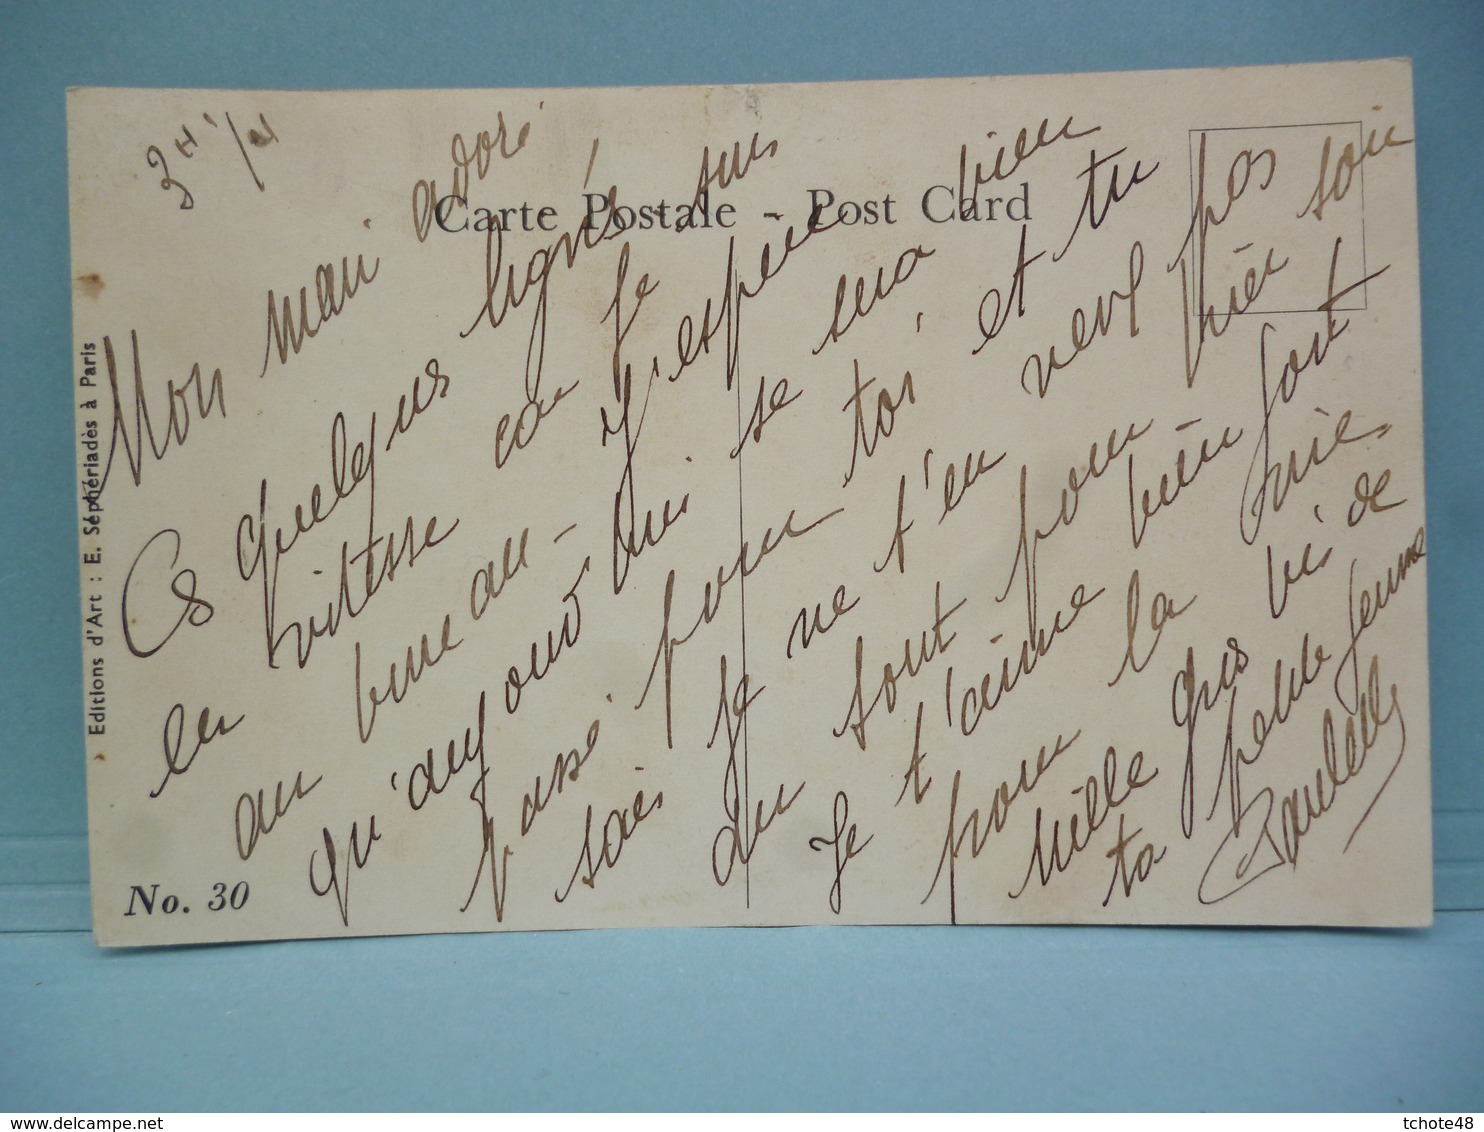 3H 1/4
Mon mari adoré
Carte Postale - Post Card
Ces quelques lignes en
vitesse car je suis
au bureau - J'espère
qu'aujourd'hui se sera bien
passé pour toi et tu
sais je ne t'en veux pas
du tout pour hier soir
Je t'aime bien fort
pour la vie.
Mille gros bis de
ta petite femme
Paulette
Editions d'Art : E. Séphériadès à Paris
No. 30
tchote48